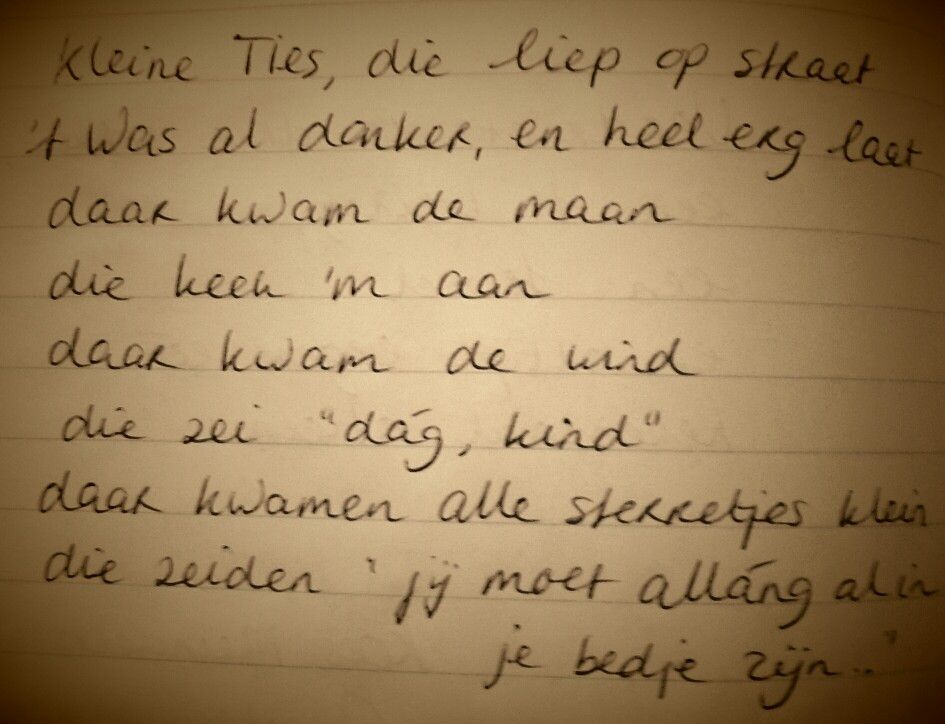 Kleine Ties, die liep op straat
't Was al donker, en heel erg laat
daar kwam de maan
die keek 'm aan
daar kwam de wind
die zei "dág, kind"
daar kwamen alle sterretjes klein
die zeiden 'jij moet alláng al in
je bedje zijn.."